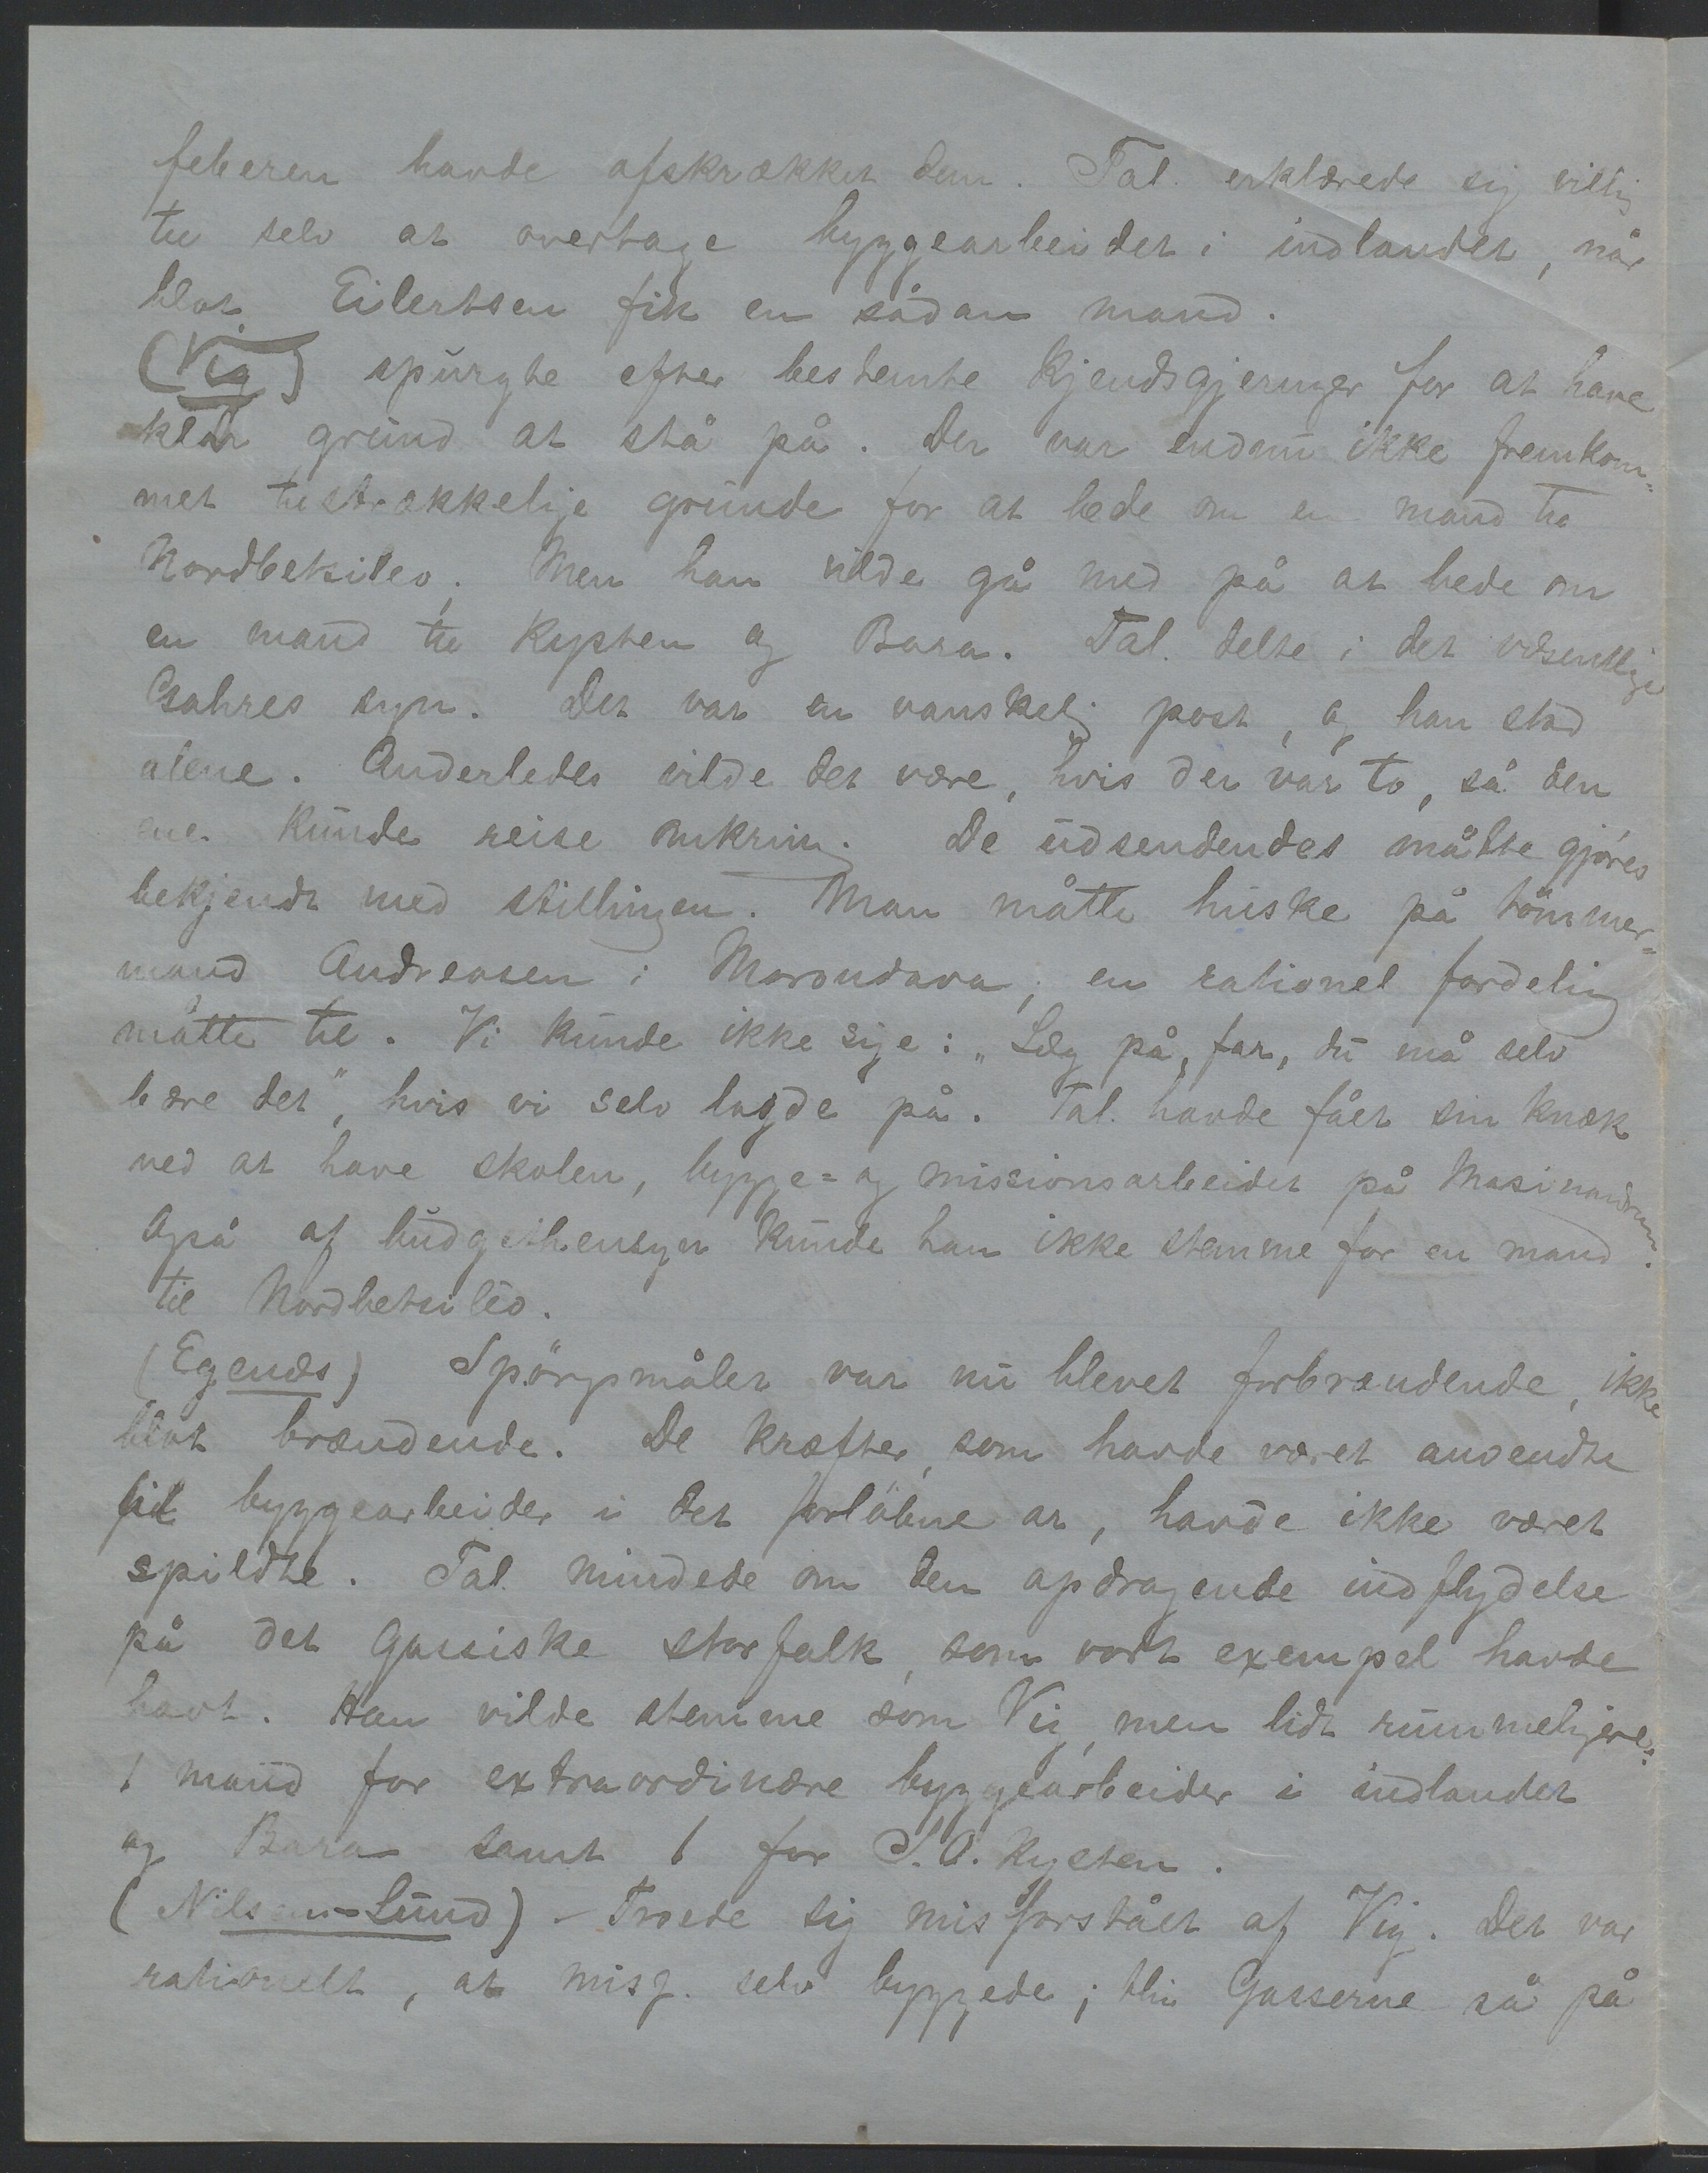 feberen havde afskrækket dem. Tal. erklærede sig villig
til selv at overtage byggearbeidet i indlandet, når
blot Eilertsen fik en sådan mand.
(Vig) spurgte efter bestemte kjendsgjerninger for at have
klar grund at stå på. Der var endnu ikke fremkom=
met tilstrækkelige grunde for at bede om en mand til
Nordbetsileo. Men han vilde gå med på at bede om
en mand til Kysten og Bara. Tal. delte i det væsentlige
Bahres syn. Det var en vanskelig post, og han stod
alene. Anderledes vilde det være, hvis der var to, så den
ene kunde reise omkring. De udsendendes måtte gjöres
bekjendt med stillingen. Man måtte huske på tömmer=
mand Andreasen i Morondava; en rationel fordeling
måtte til. Vi kunde ikke sige: „Læg på, far, du må selv
bære det", hvis vi selv lagde på. Tal. havde fået sin knæk
ved at have skolen, bygge= og missionsarbeidet på Masinandreina.
Også af budgethensyn kunde han ikke stemme for en mand
til Nordbetsileo.
(Egenæs) Spörgsmålet var nu blevet forbrændende, ikke
blot brændende. De kræfter, som havde været anvendte
til byggearbeider i det forlöbne år, havde ikke været
spildte. Tal. mindede om den opdragende indflydelse
på det gassiske storfolk, som vort exempel havde
havt. Han vilde stemme som Vig, men lidt rummeligere:
1 mand for extraordinære byggearbeider i indlandet
og Bara samt 1 for S.O. kysten.
(Nilsen-Lund) - Troede sig misforstået af Vig. Det var
rationelt, at misj. selv byggede; thi Gasserne så på